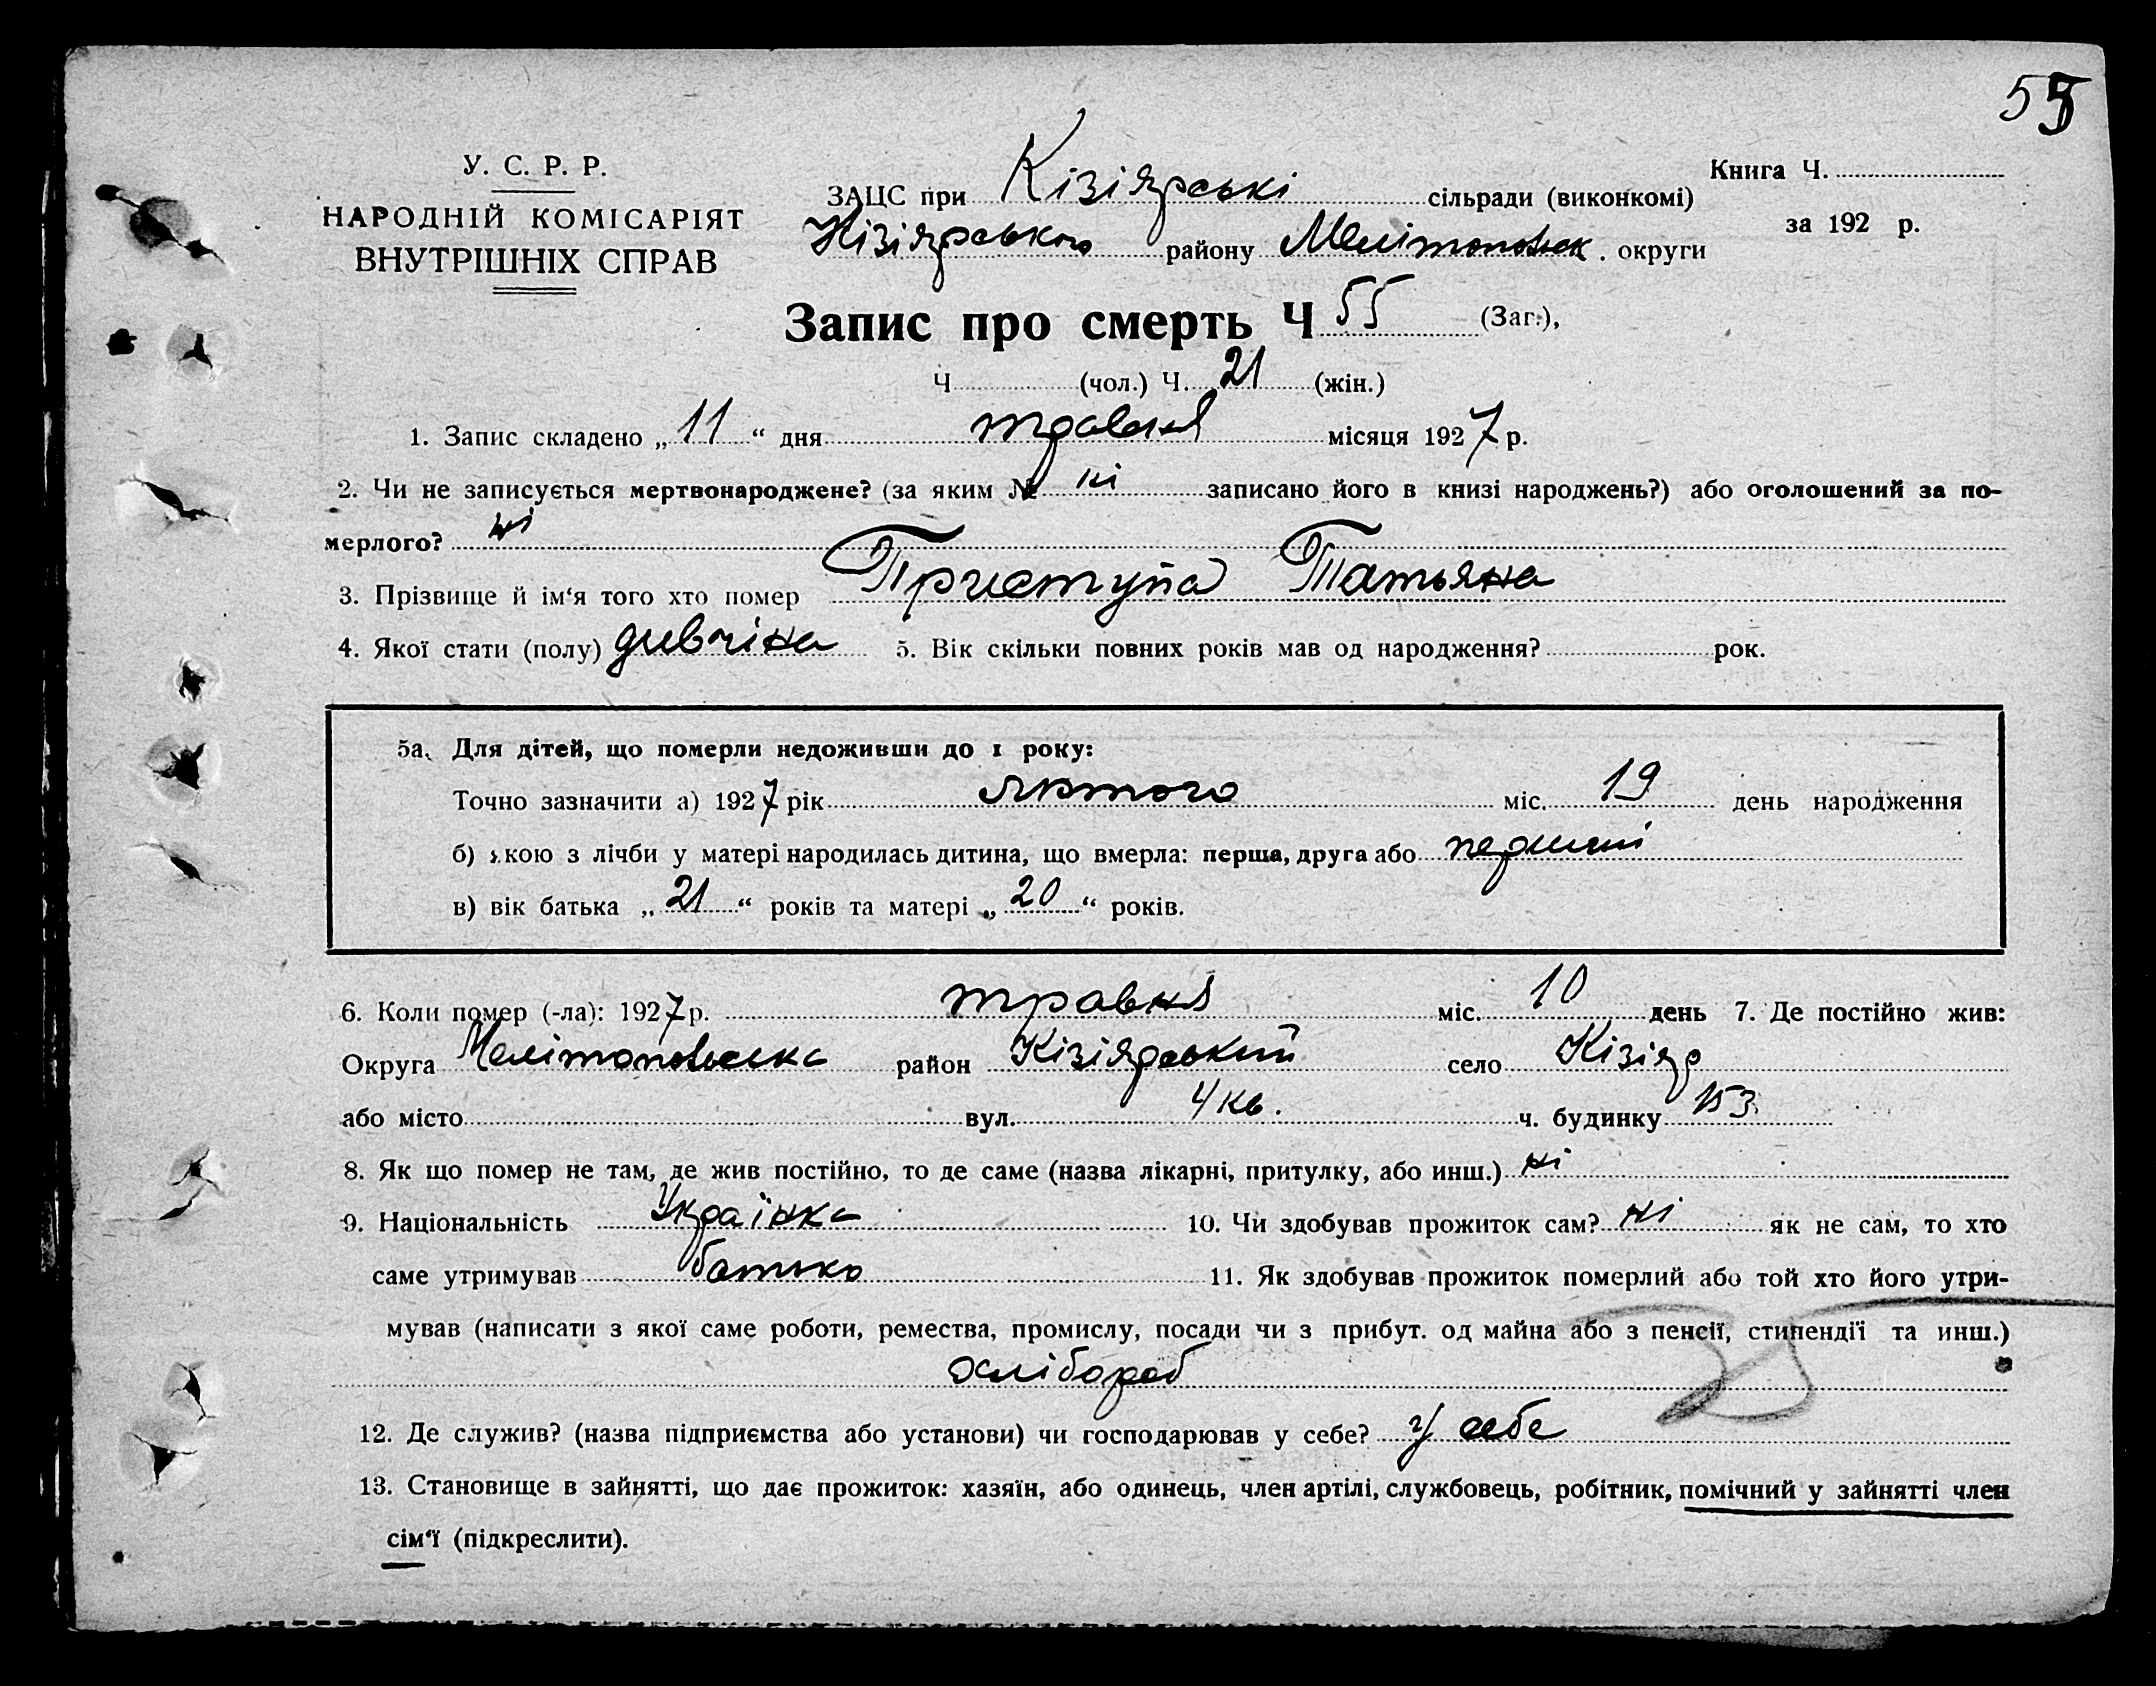 55
У. С. Р. Р.
НАРОДНІЙ КОМІСАРІЯТ
ВНУТРІШНІХ СПРАВ
ЗАЦС при Кізіярські сільради (виконкомі)
Кізіярського району Мелітопольск. округи
Книга Ч.
за 192 р.
Запис про смерть Ч 55 (Заг.),
Ч (чол.) Ч. 21 (жін.)
1. Запис складено „11“ дня травня місяця 1927 р.
2. Чи не записується мертвонароджене? (за яким № ні записано його в книзі народжень?) або оголошений за по-
мерлого? ні
3. Прізвище й ім‘я того хто помер Приступа Татьяна
4. Якої стати (полу) дивчіна 5. Вік скільки повних років мав од народження? рок.
5а. Для дітей, що померли недоживши до 1 року:
Точно зазначити а) 1927 рік лютого міс. 19 день народження
б) якою з лічби у матері народилась дитина, що вмерла: перша, друга або
в) вік батька „21“ років та матері „20“ років.
6. Коли помер (-ла): 1927 р. травня міс. 10 день 7. Де постійно жив:
Округа Мелітопольска район Кізіярський село Кізіяр
або місто вул. 4 кв. ч. будинку 153
8. Як що помер не там, де жив постійно, то де саме (назва лікарні, притулку, або инш.) ні
9. Національність Українка 10. Чи здобував прожиток сам? ні як не сам, то хто
саме утримував батько 11. Як здобував прожиток померлий або той хто його утри-
мував (написати з якої саме роботи, ремества, промислу, посади чи з прибут. од майна або з пенсії, стипендії та инш.)
хлібороб
12. Де служив? (назва підприємства або установи) чи господарював у себе? у себе
13. Становище в зайнятті, що дає прожиток: хазяїн, або одинець, член артілі, службовець, робітник, помічний у зайнятті член
сім‘ї (підкреслити).